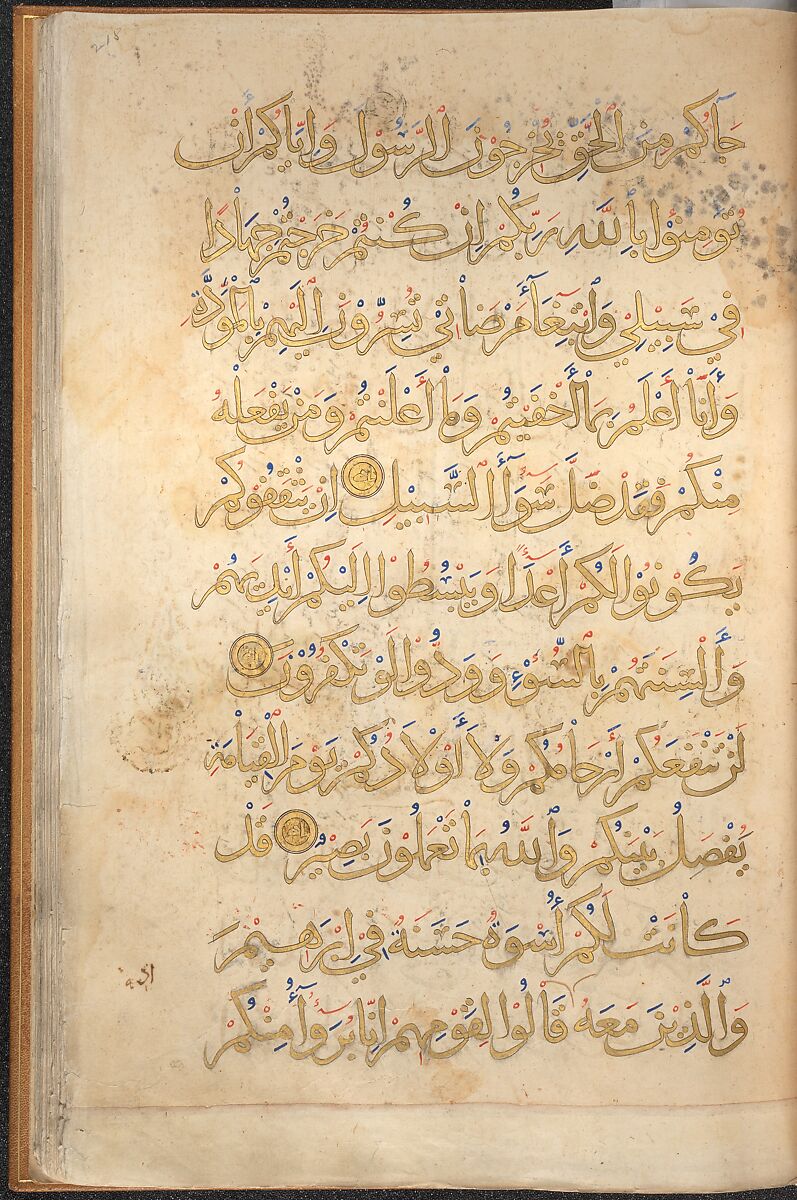 218
جَآكُمْ مِنَ الْحَقِّ يُخْرِجُونَ الرَّسُولَ وَإِيَّاكُمْ أَنْ
تُؤْمِنُوا بِاللَّهِ رَبِّكُمْ إِنْ كُنْتُمْ خَرَجْتُمْ جِهَادًا
فِي سَبِيلِي وَابْتِغَآءَ مَرْضَاتِي تُسِرُّونَ إِلَيْهِمْ بِالْمَوَدَّةِ
وَأَنَا أَعْلَمُ بِمَا أَخْفَيْتُمْ وَمَا أَعْلَنْتُمْ وَمَنْ يَفْعَلْهُ
مِنْكُمْ فَقَدْ ضَلَّ سَوَآءَ السَّبِيلِ إِنْ يَثْقَفُوكُمْ
يَكُونُوا لَكُمْ أَعْدَآءً وَيَبْسُطُوا إِلَيْكُمْ أَيْدِيَهُمْ
وَأَلْسِنَتَهُمْ بِالسُّوءِ وَوَدُّوا لَوْ تَكْفُرُونَ
لَنْ تَنْفَعَكُمْ أَرْحَامُكُمْ وَلَا أَوْلَادُكُمْ يَوْمَ الْقِيَامَةِ
يَفْصِلُ بَيْنَكُمْ وَاللَّهُ بِمَا تَعْمَلُونَ بَصِيرٌ قَدْ
كَانَتْ لَكُمْ أُسْوَةٌ حَسَنَةٌ فِي إِبْرَاهِيمَ
وَالَّذِينَ مَعَهُ إِذْ قَالُوا لِقَوْمِهِمْ إِنَّا بُرَءَآؤُا مِنْكُمْ